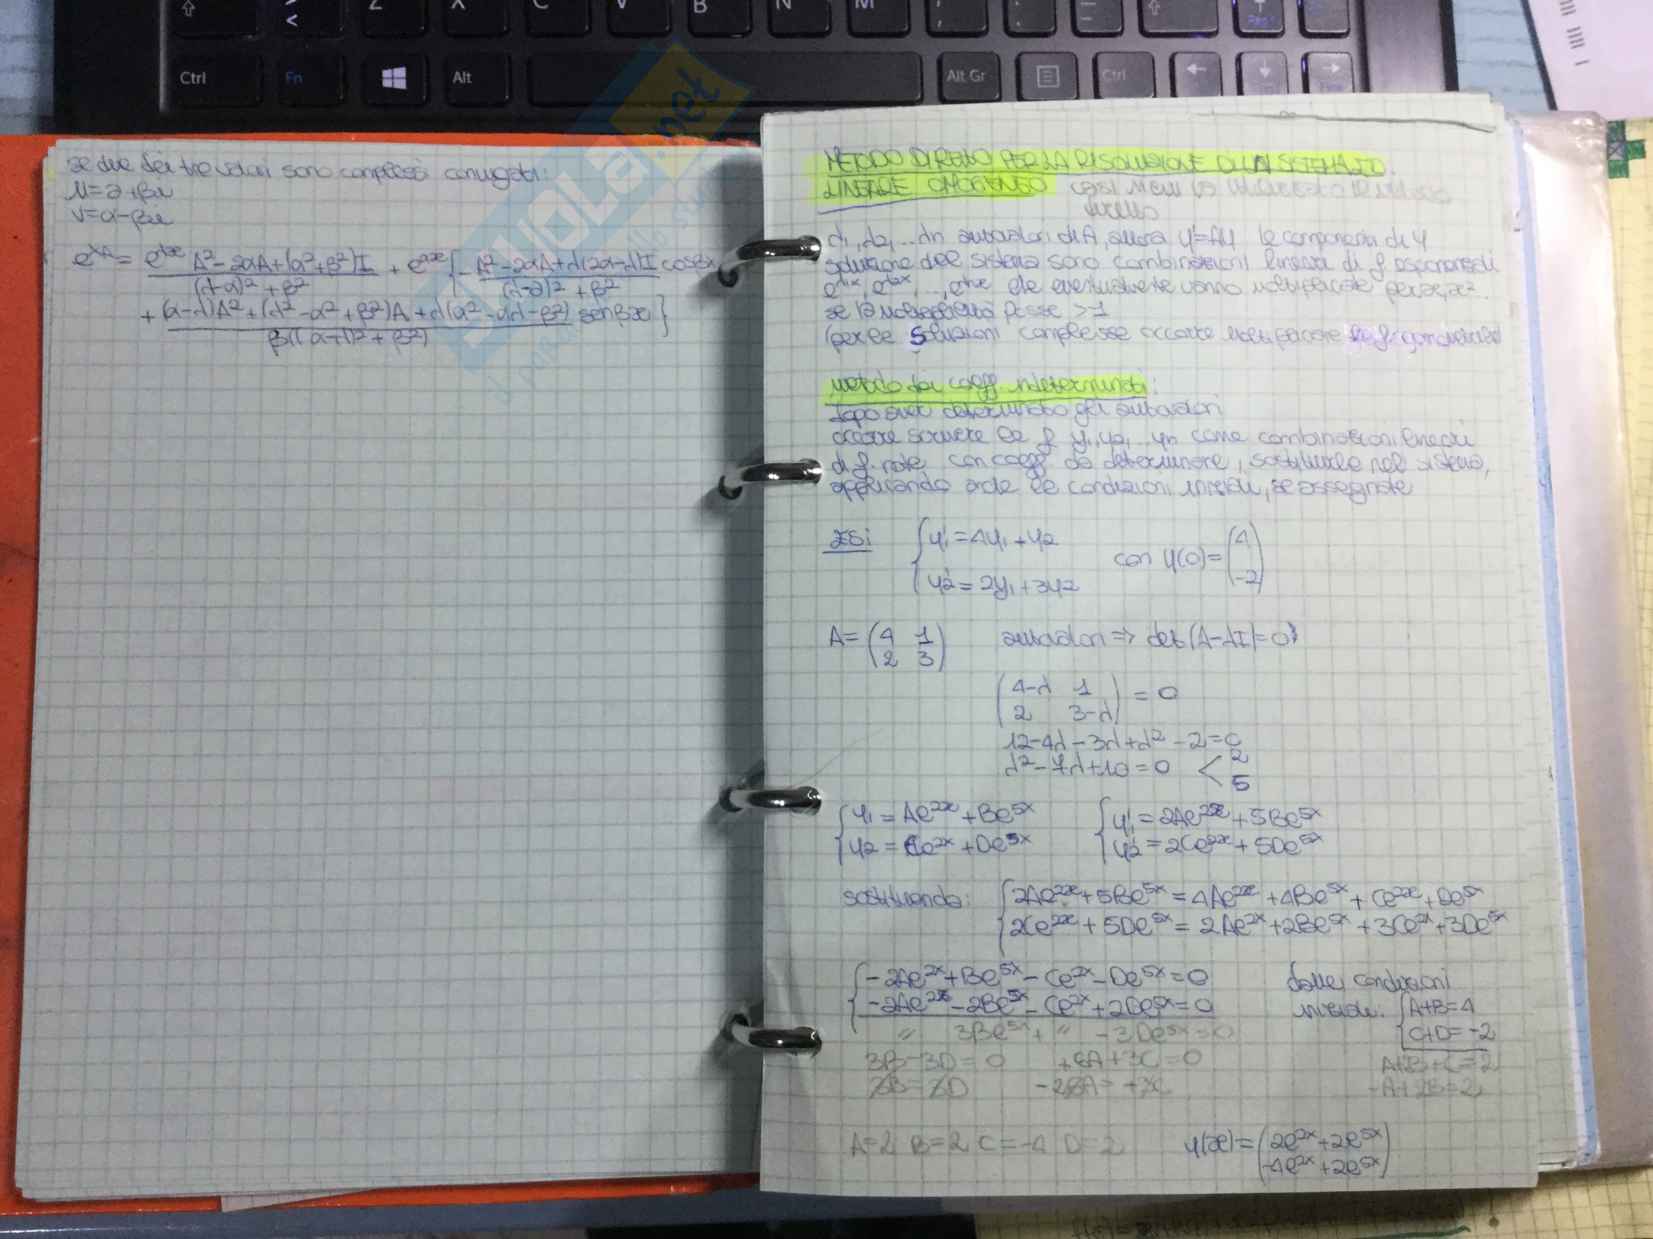 Z X C V B N M
Ctrl Fn Alt Alt Gr Ctrl
se due dei tre valori sono complessi coniugati:
μ=α+βi
ν=α-βi
e^{xA} = e^{λx} (A²-2αA+(α²+β²)I)/((λ-α)²+β²) + e^{αx}{ - (A²-2αA+λ(2α-λ)I)/((λ-α)²+β²) cosβx
+ ((α-λ)A²+(λ²-α²+β²)A+λ(α²-αλ-β²))/(β((α-λ)²+β²)) senβx }
METODO DIRETTO PER LA RISOLUZIONE DI UN SISTEMA
LINEARE OMOGENEO
λ1, λ2, ... λn autovalori di A, allora y'=Ay le componenti di y
soluzione del sistema sono combinazioni lineari di f esponenziali
e^{λ1x}, e^{λ2x}, ..., e^{λnx} che eventualmente vanno moltiplicate per x, x²..
se la molteplicità fosse >1
(per le soluzioni complesse occorre moltiplicare le f. goniometriche
metodo dei coeff. indeterminati:
dopo aver determinato gli autovalori
occorre scrivere le f y1, y2, .. yn come combinazioni lineari
di f. note, con coeff da determinare, sostituirle nel sistema,
applicando anche le condizioni iniziali, se assegnate
ES: { y1'=4y1+y2
y2'=2y1+3y2 con y(0)=(4 -2)
A=(4 1
2 3) autovalori => det(A-λI)=0
(4-λ 1
2 3-λ) = 0
12-4λ-3λ+λ²-2=0
λ²-7λ+10=0 < 2
5
{ y1=Ae^{2x}+Be^{5x} { y1'=2Ae^{2x}+5Be^{5x}
y2=Ce^{2x}+De^{5x} y2'=2Ce^{2x}+5De^{5x}
sostituendo: { 2Ae^{2x}+5Be^{5x}=4Ae^{2x}+4Be^{5x}+Ce^{2x}+De^{5x}
2Ce^{2x}+5De^{5x}=2Ae^{2x}+2Be^{5x}+3Ce^{2x}+3De^{5x}
{ -2Ae^{2x}+Be^{5x}-Ce^{2x}-De^{5x}=0 dalle condizioni
-2Ae^{2x}-2Be^{5x}-Ce^{2x}+2De^{5x}=0 iniziali: { A+B=4
C+D=-2
" 3Be^{5x}+ " -3De^{5x}=0
3B-3D=0
A=2 B=2 C=-4 D=2 y(x)=(2e^{2x}+2e^{5x}
-4e^{2x}+2e^{5x})